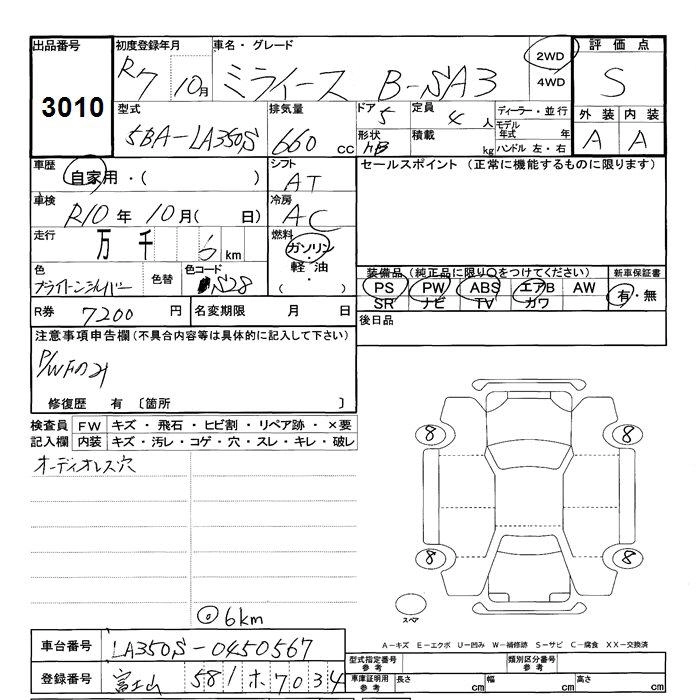 出品番号 初度登録年月 車名・グレード 評価点
3010 R7 10月 ミライース B-SA3 2WD 4WD S
型式 排気量 ドア 定員 ディーラー・並行 外装 内装
5BA-LA350S 660cc 5 4人 モデル年式 年 A A
形状 HB 積載 kg ハンドル 左・右
車歴 シフト セールスポイント (正常に機能するものに限ります)
自家用・( ) AT
車検 冷房
R10年 10月( 日) AC
走行 燃料
万 千 6 km ガソリン・軽油・( )
色 色替 色コード 装備品(純正品に限り○をつけてください) 新車保証書
ブライトーンシルバー S28 PS PW ABS エアB AW 有・無
SR ナビ TV ガワ
R券 7200円 名変期限 月 日 後日品
注意事項申告欄(不具合内容等は具体的に記入して下さい)
P/WFのみ
修復歴 有 〔箇所 〕
検査員記入欄 FW キズ・飛石・ヒビ割・リペア跡・×要
内装 キズ・汚レ・コゲ・穴・スレ・キレ・破レ
オーディオレス穴
8 8
8 8
スペア
◎6km
A-キズ E-エクボ U-凹み W-補修跡 S-サビ C-腐食 XX-交換済
車台番号 LA350S-0450567
型式指定番号 参考 類別区分番号 参考
登録番号 富士山 581 ホ 7034
車庫証明用 参考 長さ cm 幅 cm 高さ cm